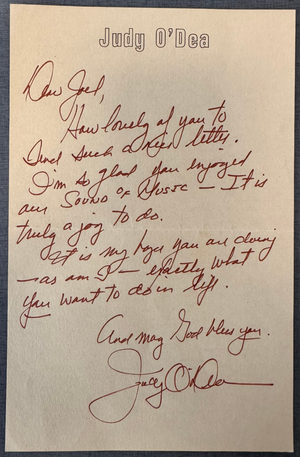 Judy O'Dea
Dear Joel,
How lovely of you to
send such a nice letter.
I'm so glad you enjoyed
our SOUND OF MUSIC — It is
truly a joy to do.
It is my hope you are doing
— as am I — exactly what
you want to do in life.
And may God bless you.
Judy O'Dea